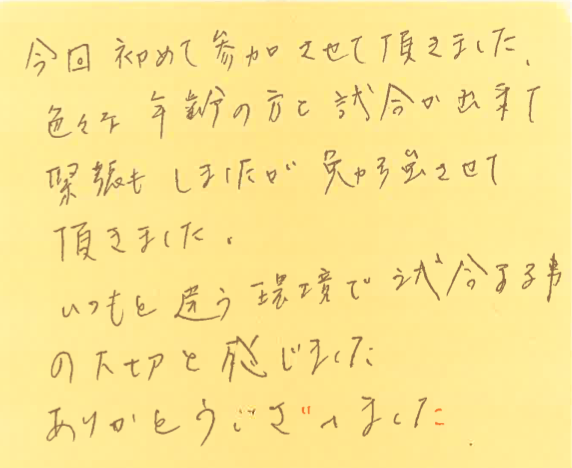 今回 初めて参加させて頂きました。
色々な年齢の方と試合が出来て
緊張もしましたが勉強させて
頂きました。
いつもと違う環境で試合する事
の大切と感じました
ありがとうございました